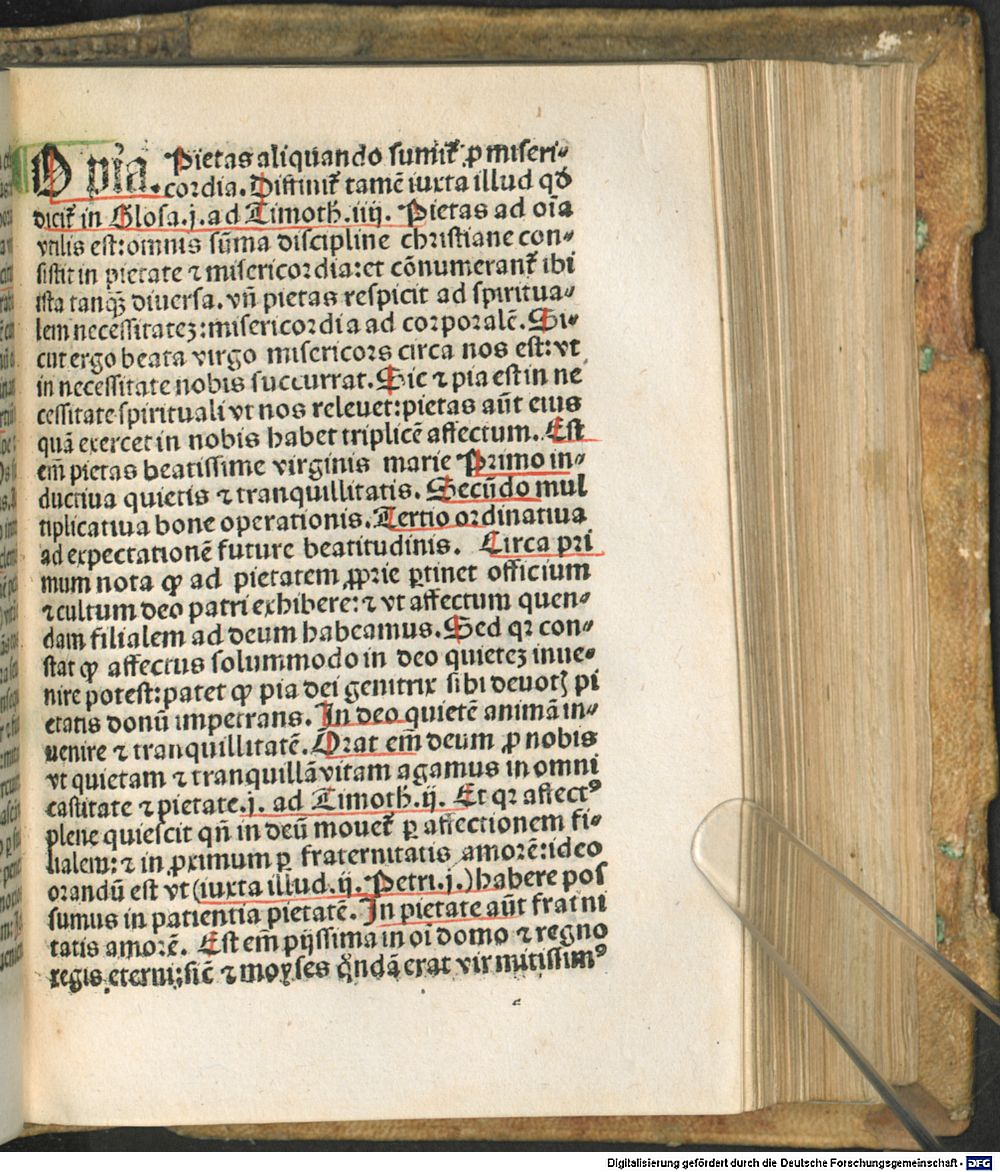 O pia. Pietas aliquando sumit᷑ ꝓ miseri⸗
cordia. Distinit᷑ tamē iuxta illud qd̄
dicit᷑ in Glosa.j.ad Timoth.iiij. Pietas ad oīa
vtilis est:omnis sūma discipline christiane con⸗
sistit in pietate ⁊ misericordia:et cōnumerant᷑ ibi
ista tanqȝ̄ diuersa. vn̄ pietas respicit ad spiritua⸗
lem necessitateȝ:misericordia ad corporalē. Si⸗
cut ergo beata virgo misericors circa nos est:vt
in necessitate nobis succurrat. Sic ⁊ pia est in ne
cessitate spirituali vt nos releuet:pietas aūt eius
quā exercet in nobis habet triplicē affectum. Est
em̄ pietas beatissime virginis marie Primo in⸗
ductiua quietis ⁊ tranquillitatis. Secūdo mul
tiplicatiua bone operationis. Tertio ordinatiua
ad expectationē future beatitudinis. Circa pri
mum nota ꝙ ad pietatem ꝓprie ꝑtinet officium
⁊ cultum deo patri exhibere:⁊ vt affectum quen⸗
dam filialem ad deum habeamus. Sed qꝛ con⸗
stat ꝙ affectus solummodo in deo quieteȝ inue⸗
nire potest:patet ꝙ pia dei genitrix sibi deuotꝭ pi
etatis donū impetrans. In deo quietē animā in⸗
uenire ⁊ tranquillitatē. Orat em̄ deum ꝓ nobis
vt quietam ⁊ tranquillā vitam agamus in omni
castitate ⁊ pietate.j. ad Timoth.ij. Et qꝛ affectꝰ
plene quiescit qn̄ in deū mouet᷑ ꝑ affectionem fi⸗
lialem:⁊ in ꝓximum ꝑ fraternitatis amorē:ideo
orandū est vt (iuxta illud.ij. Petri.j.) habere pos
sumus in patientia pietatē. In pietate aūt frat᷑ni
tatis amorē. Est em̄ pijssima in oī domo ⁊ regno
regis eterni;sic̄ ⁊ moyses qͦndā erat vir mitissimꝰ
Digitalisierung gefördert durch die Deutsche Forschungsgemeinschaft - DFG